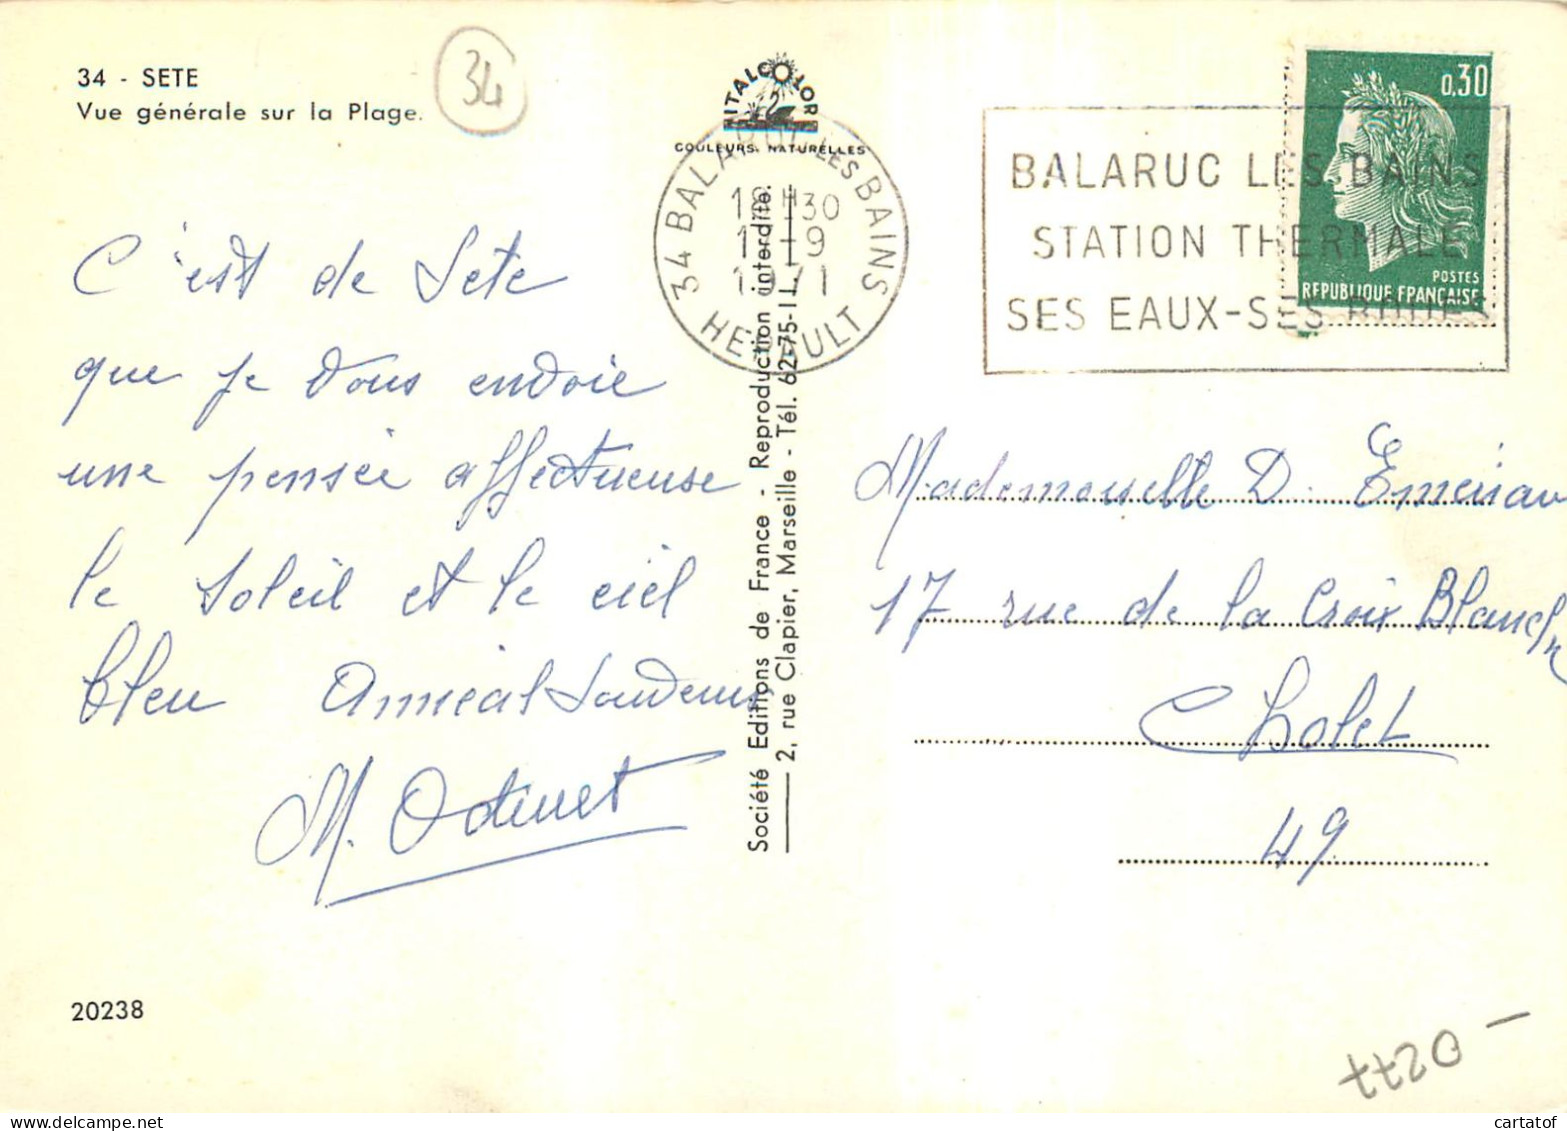 34 - SETE
Vue générale sur la Plage.
34
C'est de Sete
que je vous envoie
une pensée affectueuse
le soleil et le ciel
bleu Amical Souvenir
M.
20238
ITALCOLOR
COULEURS NATURELLES
34 BALARUC LES BAINS
18H30
-9
1971
HERAULT
Société Editions de France - Reproduction interdite.
2, rue Clapier, Marseille - Tél. 62-75-11
BALARUC LES BAINS
STATION THERMALE
SES EAUX-SES BOUES
0,30
POSTES
REPUBLIQUE FRANÇAISE
Mademoiselle D.
17 rue de la Croix Blanche
Cholet
49
cartatof